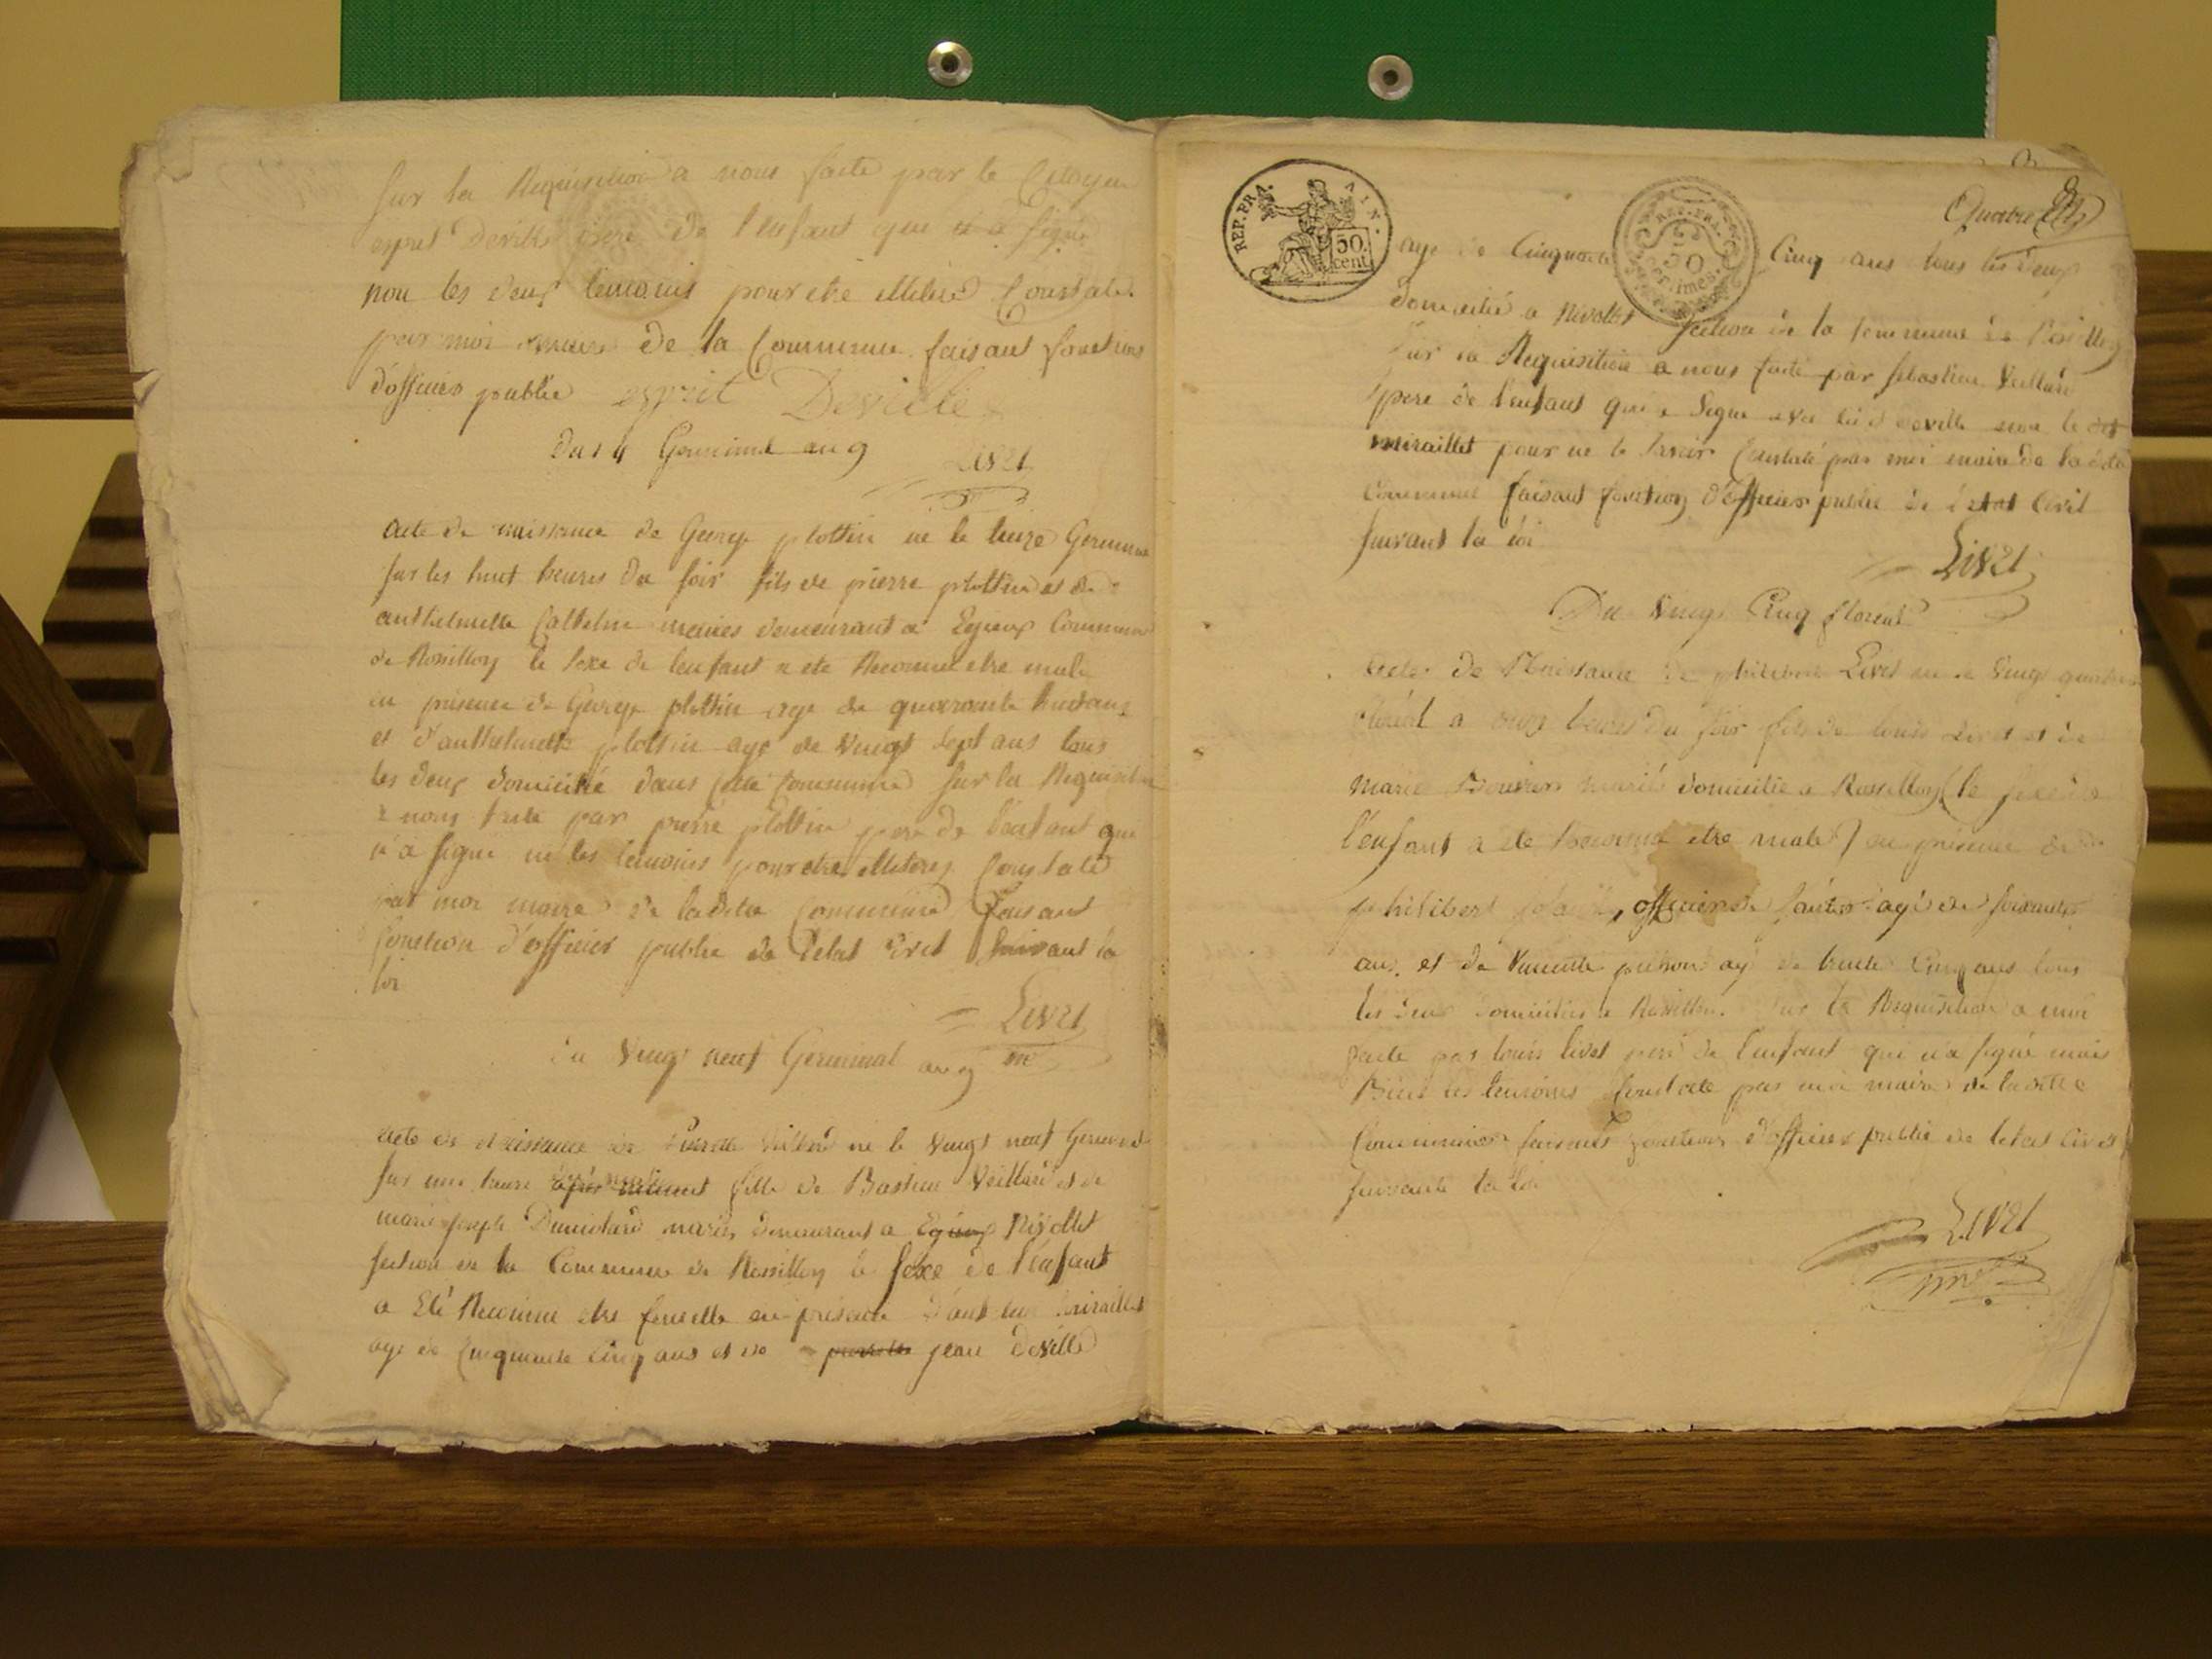 Sur la Requisition a nous faite par le Citoyen
esprit Deville pere de l'enfant qui a signé
non les deux temoins pour etre illiteré Constaté
par moi maire de la Commune faisant fonctions
d'officier public esprit Deville
Du 14 Germinal an 9 Livet
acte de naissance de George plottin né le treize Germinal
sur les huit heures du soir fils de pierre plottin et de
anthelmette mariés demeurant a Egieux Commune
de Rossillon le sexe de lenfant a ete Reconnu etre male
en présence de George plottin age de quarante huit ans
et d'anthelmette plottin age de vingt sept ans tous
les deux domicilié dans cette Commune sur la Requisition
a nous faite par pierre plottin pere de l'enfant qui
n'a signé ne les temoins pour etre illiteres Constaté
par moi maire de ladite Commune faisant
fonction d'officier public de l'etat Civil suivant la
loi
Livet
du vingt neuf Germinal an 9 me
acte de Naissance de né le vingt neuf Germinal
sur une heure fille de Bastien Veillard et de
marie joseph mariés demeurant a Egieux Nivollet
section de la Commune de Rossillon le sexe de l'enfant
a Eté Reconnu etre femelle en présence miraillet
age de Cinquante cinq ans et de jean deville
REP. FRA. 50 cent.
REP. FRA. 50 centimes
Quatre
age de Cinquante Cinq ans tous les deux
domicilié a Nivollet section de la Commune de Rossillon
sur la Requisition a nous faite par sebastien Veillard
pere de l'enfant qui a Signé avec led deville non le dit
miraillet pour ne le savoir Constaté par moi maire de la dite
Commune faisant fonction d'officier public de l'etat Civil
suivant la loi
Livet
Du Vingt Cinq floreal
Acte de Naissance de philibert Livet né le Vingt quatre
floréal a onze heures du soir fils de louis Livet et de
marie mariés domicilié a Rossillon (le sexe de
l'enfant a ete Reconnu etre male) en présence de
philibert , officier de santé agé de soixante
ans et de Vincent age de trente Cinq ans tous
les deux domiciliés a Rossillon. sur la Requisition a moi
faite par louis livet peré de l'enfant qui n'a signé mais
Bien les temoins Constaté par moi maire de laditte
Commune faisant fonctions d'officier public de letat Civil
suivant la loi
Livet
me